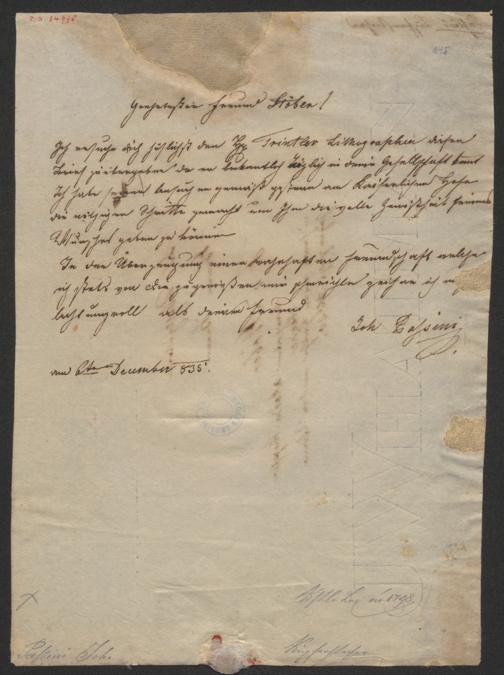 Geehrtester Freund Stöber!
Ich ersuche dich höflichst den Hr Trentler Lithographen diesen
Brief zu übergeben da er bekanntlich täglich in deine Gesellschaft kommt
Ich habe seinem Ansuchen gemäß gestern am Kaiserlichen Hofe
die nöthigen Schritte gemacht um Ihm die volle Gewißheit seines
Wunsches geben zu können
In der Überzeugung einer wahrhaften Freundschaft welche
ich stets von dir zu genießen mir schmeichle zeichne ich
achtungsvoll als deinen Freund
Joh Passini
am 6ten December 835.
Passini Joh.
Kupferstecher